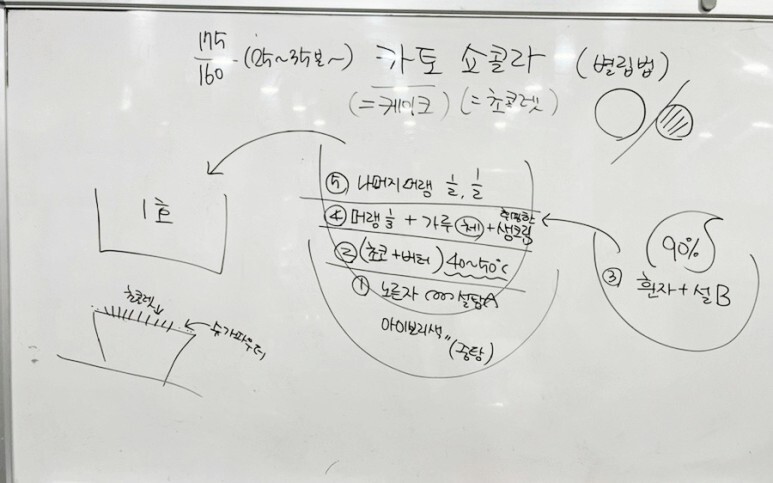 175
160
(25~35분~)
가토 쇼콜라 (별립법)
(=케이크) (=초코렛)
1호
⑤ 나머지머랭 ½, ½
④ 머랭 ⅓ + 가루(체) + 생크림
② (초코+버터) 40~50℃
① 노른자 설탕A
아이보리색"
(중탕)
90%
③ 흰자+설B
초코렛
슈가파우더